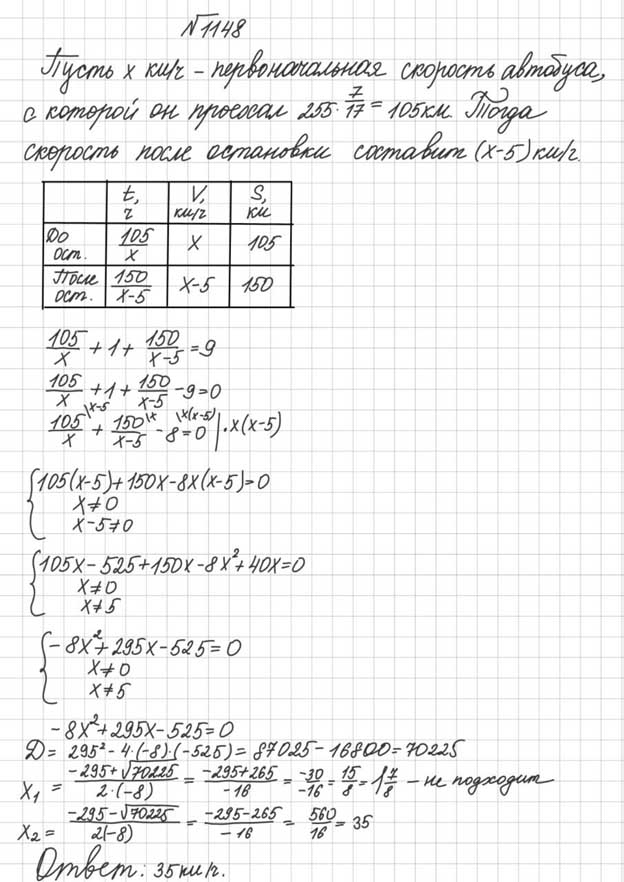 №1148
Пусть х км/ч - первоначальная скорость автобуса,
с которой он проехал 255·7/17=105км. Тогда
скорость после остановки составит (х-5)км/ч.
t, ч V, км/ч S, км
До ост. 105/x x 105
После ост. 150/x-5 x-5 150
105/x + 1 + 150/x-5 = 9
105/x + 1 + 150/x-5 - 9 = 0
105/x \x-5 + 150/x-5 \x - 8 \x(x-5) = 0 |·x(x-5)
{105(x-5)+150x-8x(x-5)=0
x≠0
x-5≠0
{105x-525+150x-8x²+40x=0
x≠0
x≠5
{-8x²+295x-525=0
x≠0
x≠5
-8x²+295x-525=0
Д= 295²-4·(-8)·(-525)=87025-16800=70225
x₁ = -295+√70225/2·(-8) = -295+265/-16 = -30/-16 = 15/8 = 1 7/8 - не подходит
x₂ = -295-√70225/2(-8) = -295-265/-16 = 560/16 = 35
Ответ: 35км/ч.